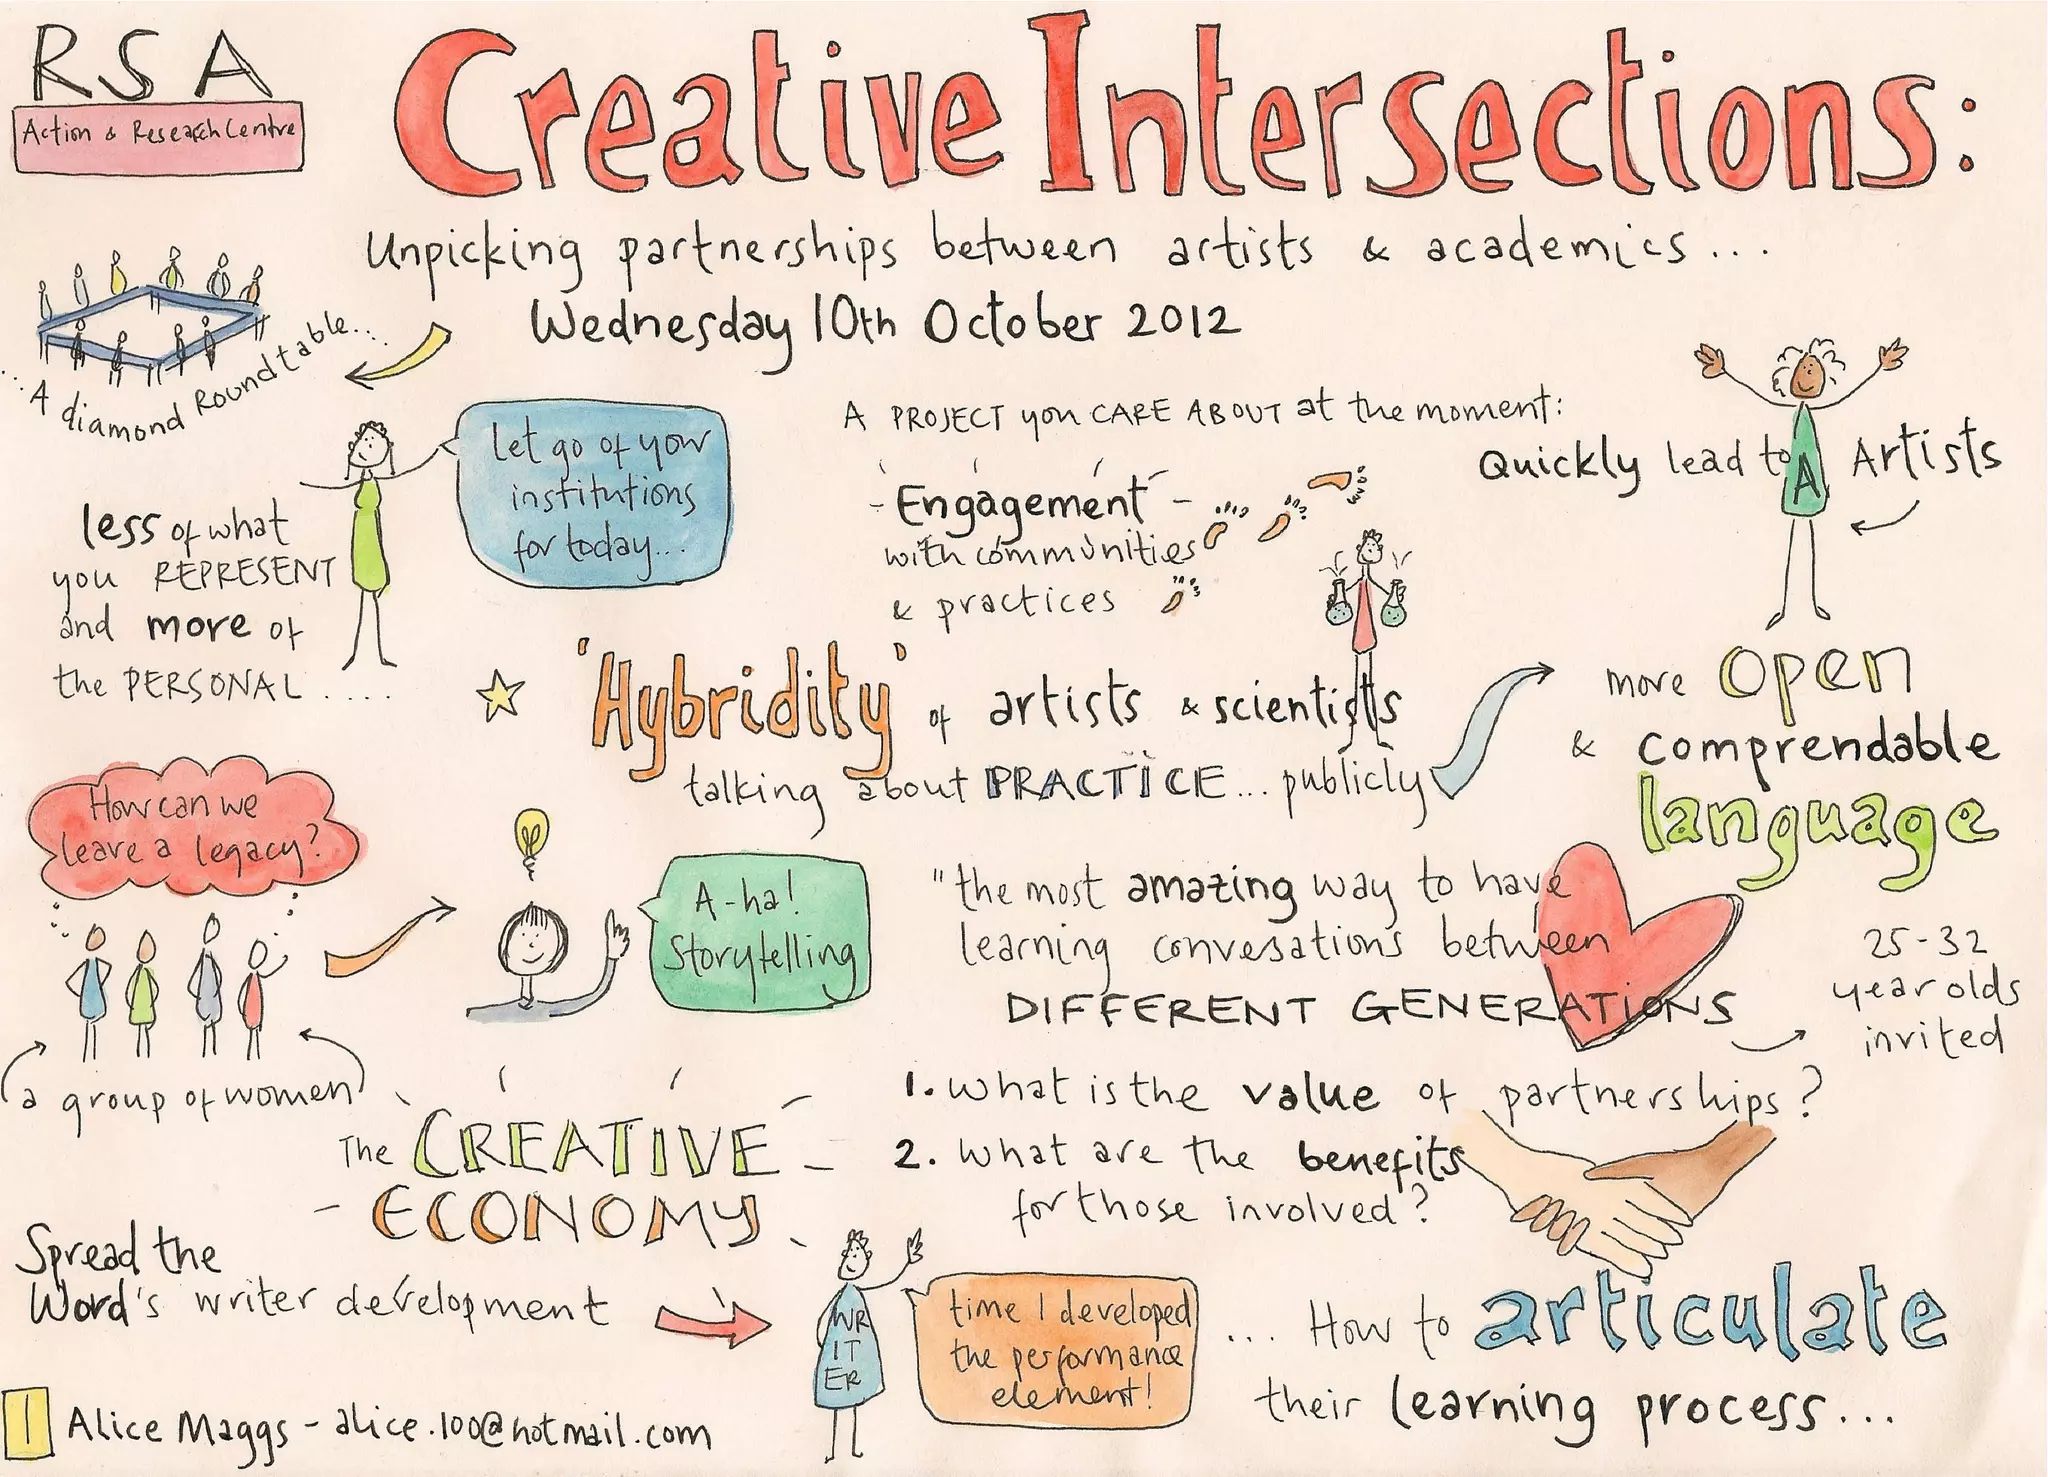 RSA
Action & Research Centre
Creative Intersections:
Unpicking partnerships between artists & academics...
Wednesday 10th October 2012
...A diamond Roundtable...
Let go of your
institutions
for today...
less of what
you REPRESENT
and more of
the PERSONAL....
A PROJECT you CARE ABOUT at the moment:
Engagement
with communities
& practices
Quickly lead to
A
Artists
'Hybridity' of artists & scientists
talking about PRACTICE... publicly
more open
& comprendable
language
How can we
leave a legacy?
a group of women
A-ha!
Storytelling
"the most amazing way to have
learning convesations between
DIFFERENT GENERATIONS
25-32
year olds
invited
The CREATIVE
ECONOMY
1. What is the value of partnerships?
2. What are the benefits
for those involved?
Spread the
Word's writer development
WR
IT
ER
time I developed
the performance
element!
... How to articulate
their learning process...
1 Alice Maggs - alice.100@hotmail.com